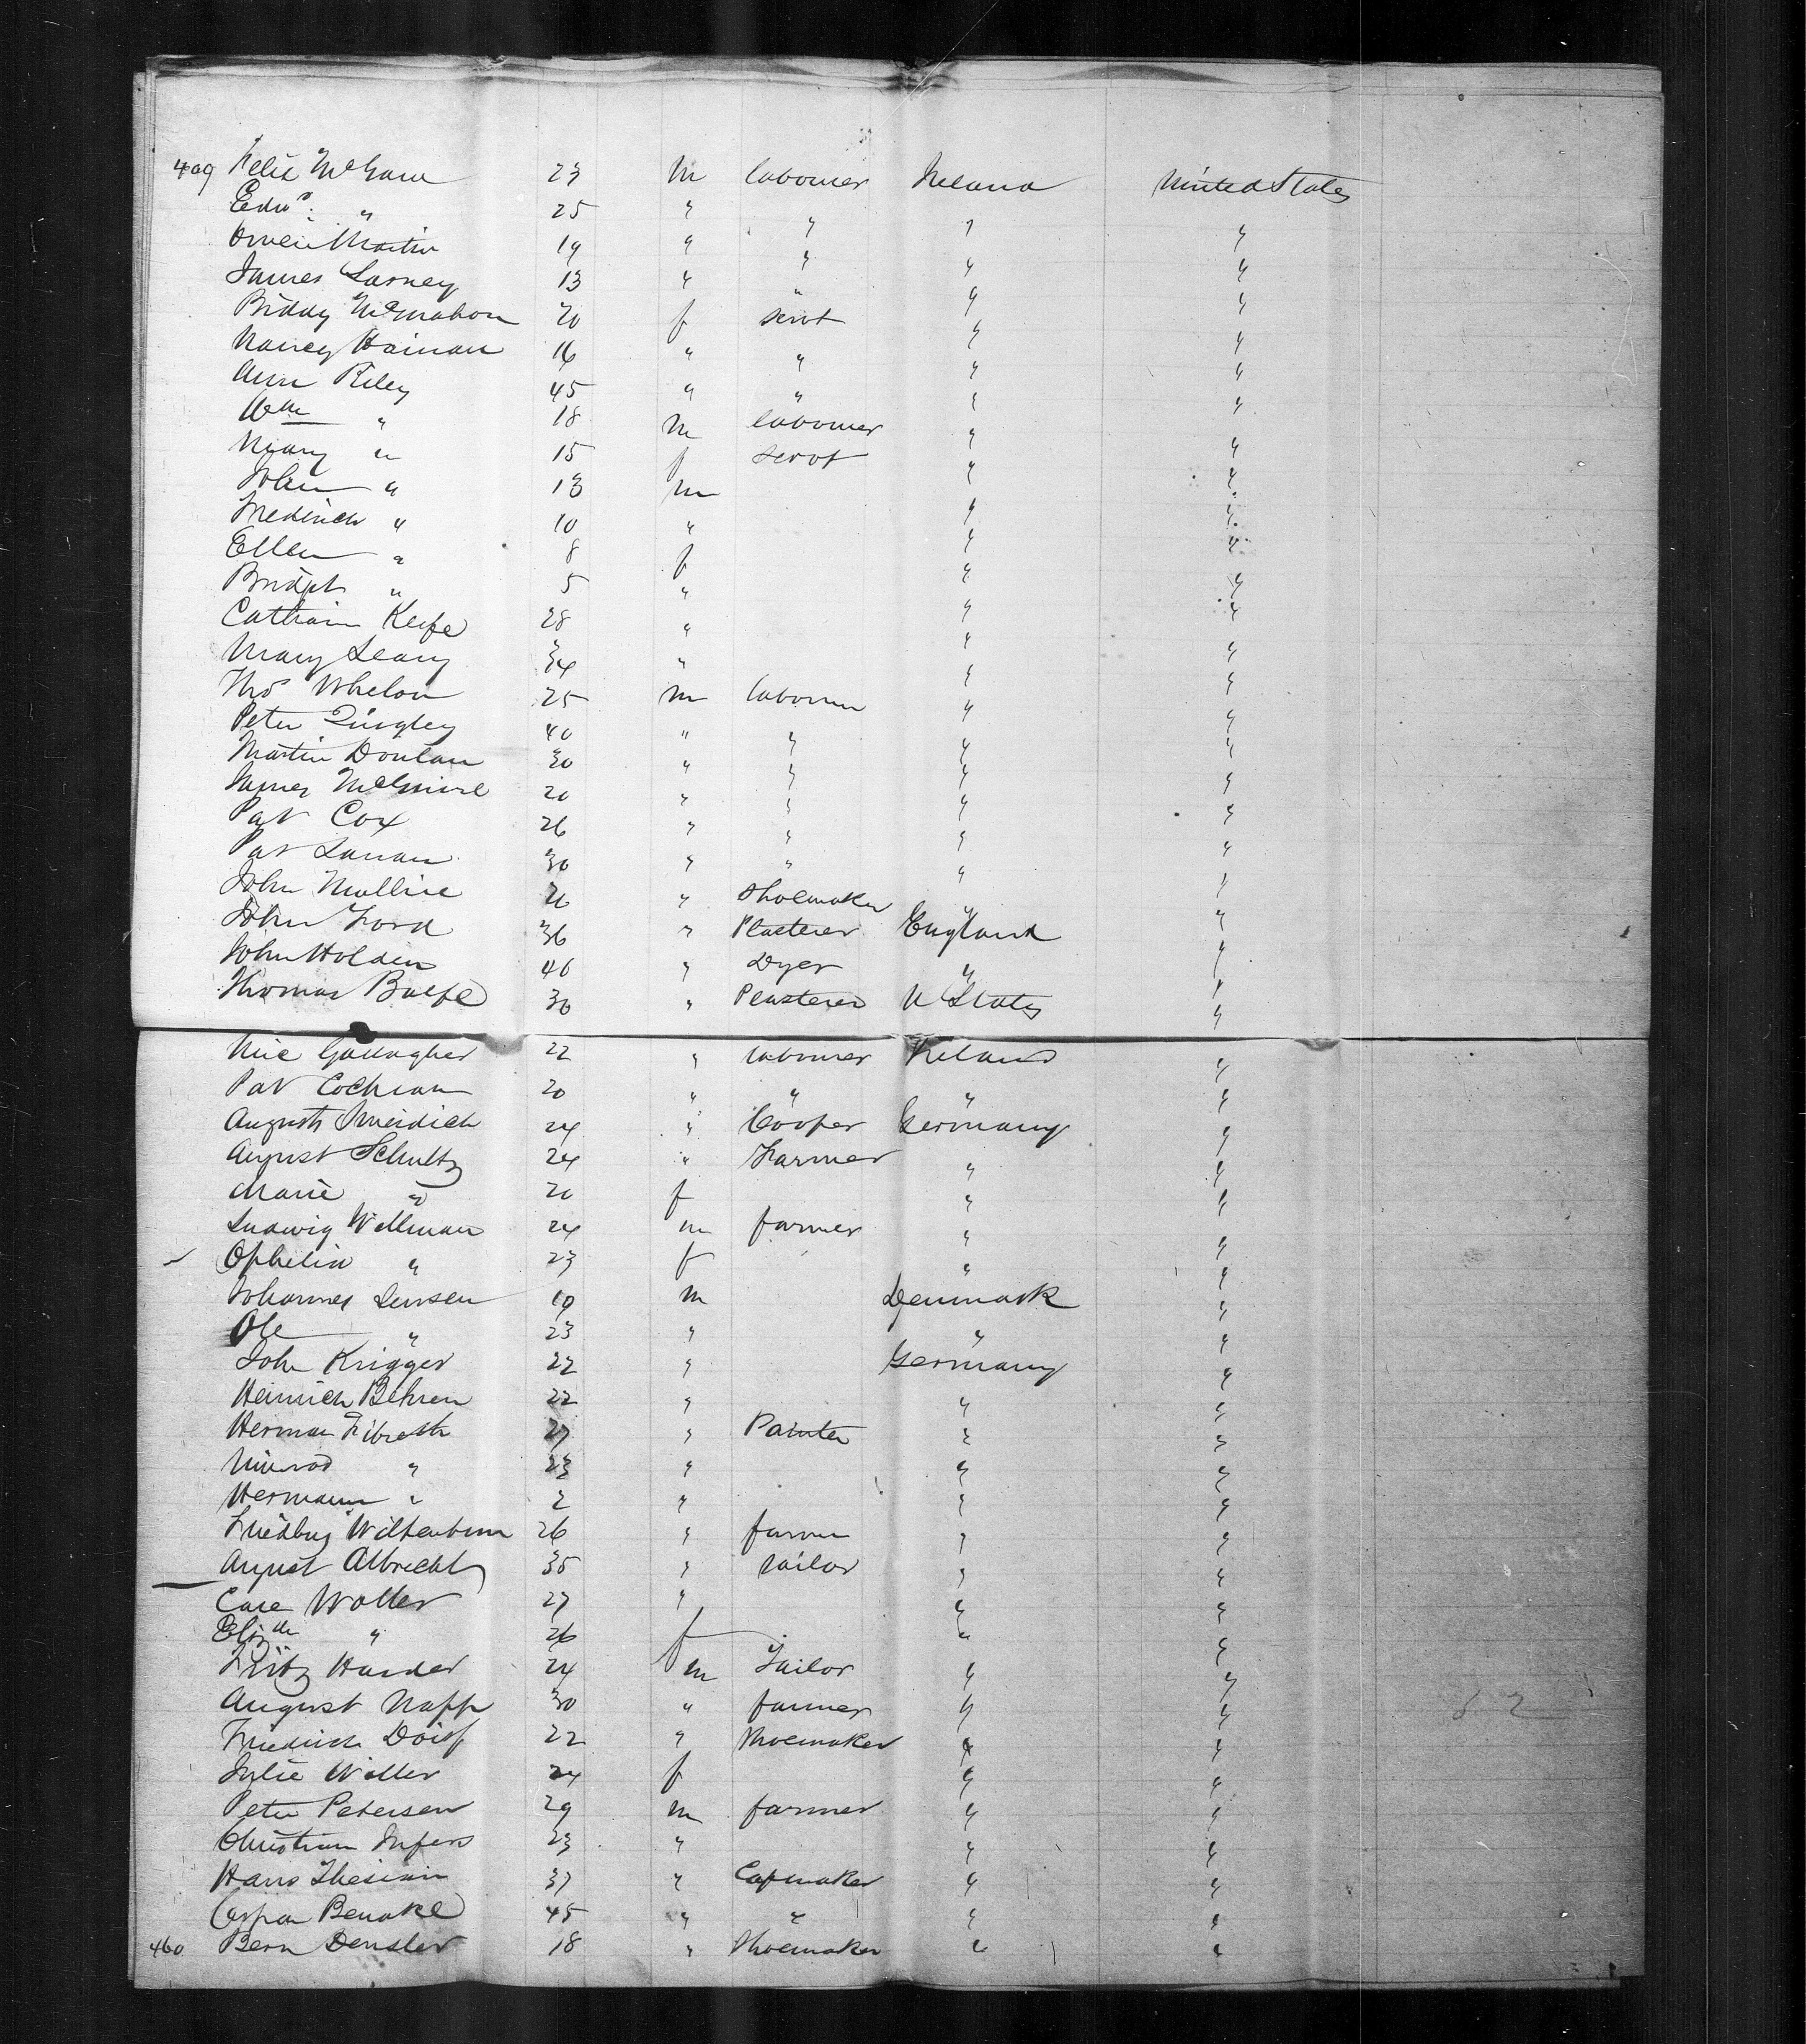 409 Felix McGam 23 m labourer Ireland United States
Edwd. " 25 " " " "
Owen Martin 19 " " " "
James Larney 13 " " " "
Biddy McMahon 20 f servt " "
Nancy Hainan 16 " " " "
Ann Riley 45 " " " "
Wm " 18 m labourer " "
Mary " 15 f servt " "
John " 13 m " "
Fredrick " 10 " " "
Ellen " 8 f " "
Bridget " 5 " " "
Catharin Keefe 28 " " "
Mary Leary 34 " " "
Thos Whelan 25 m labourer " "
Peter Quigley 40 " " " "
Martin Donlan 30 " " " "
James McGuire 20 " " " "
Pat Cox 26 " " " "
Pat Lanan 30 " " " "
John Mullin 26 " Shoemaker " "
John Ford 36 " Plasterer England "
John Holden 40 " Dyer " "
Thomas Balfe 30 " Plasterer U States "
Mic Gallagher 22 " labourer Ireland "
Pat Cochran 20 " " " "
August 24 " Cooper Germany "
August Schultz 24 " Farmer " "
Marie " 20 f " "
Ludwig Wellman 24 m farmer " "
Ophelia " 23 f " "
Johannes Jensen 19 m Denmark "
Ole " 23 " " "
John Krigger 22 " Germany "
Heinrich Behren 22 " " "
Herman 27 " Painter " "
" 23 " " "
Hermann " 2 " " "
26 " farmer " "
August Albrecht 35 " tailor " "
Wolter 27 " " "
Elizth " 26 f " "
Fritz Harder 24 m Tailor " "
August Napp 30 " farmer " "
Friedrich 22 " Shoemaker " "
Julie Wolter 24 f " "
Peter Petersen 29 m farmer " "
Christian 23 " " "
Hans 37 " Capmaker " "
Caspar Benake 45 " " " "
460 Bern Densler 18 " Shoemaker " "